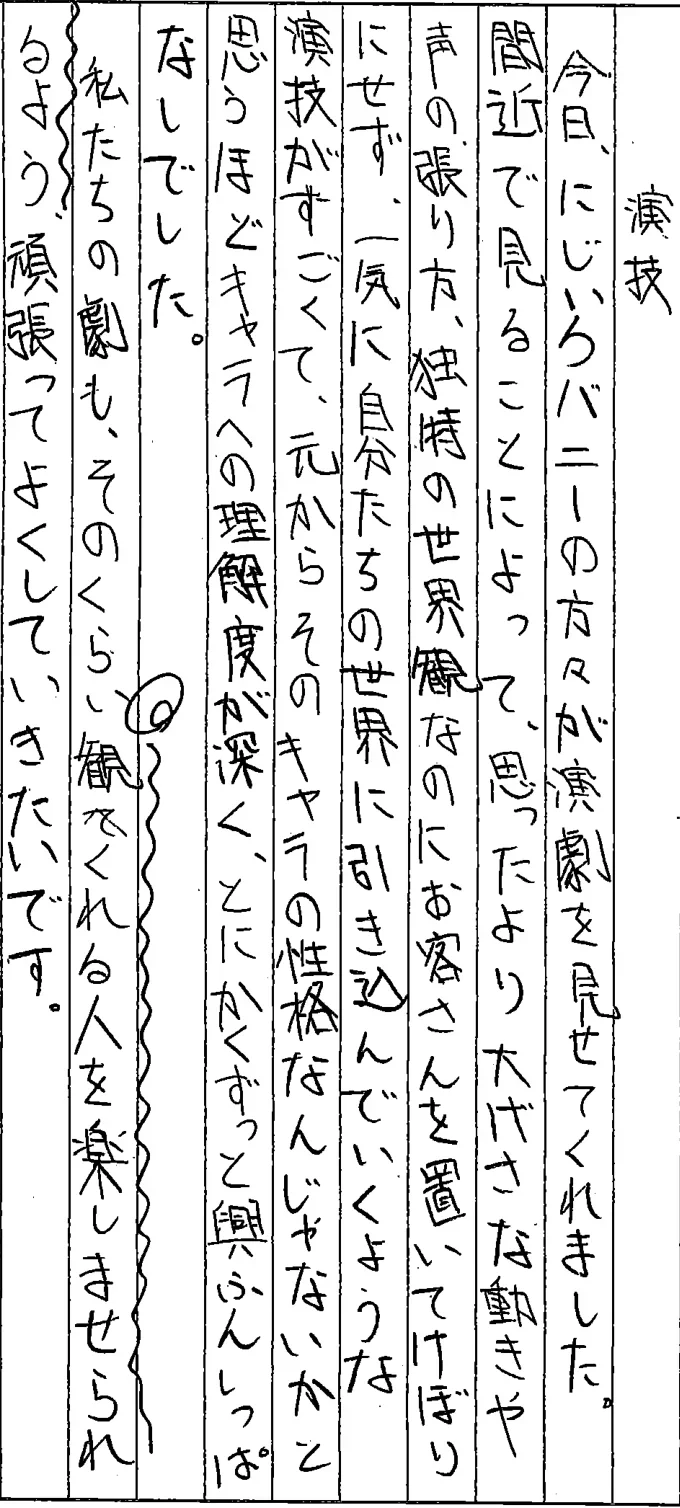 演技
今日、にじいろバニーの方々が演劇を見せてくれました。
間近で見ることによって、思ったより大げさな動きや
声の張り方、独特の世界観なのにお客さんを置いてけぼり
にせず、一気に自分たちの世界に引き込んでいくような
演技がすごくて、元からそのキャラの性格なんじゃないかと
思うほどキャラへの理解度が深く、とにかくずっと興ふんしっぱ
なしでした。
私たちの劇も、そのくらい観てくれる人を楽しませられ
るよう、頑張ってよくしていきたいです。